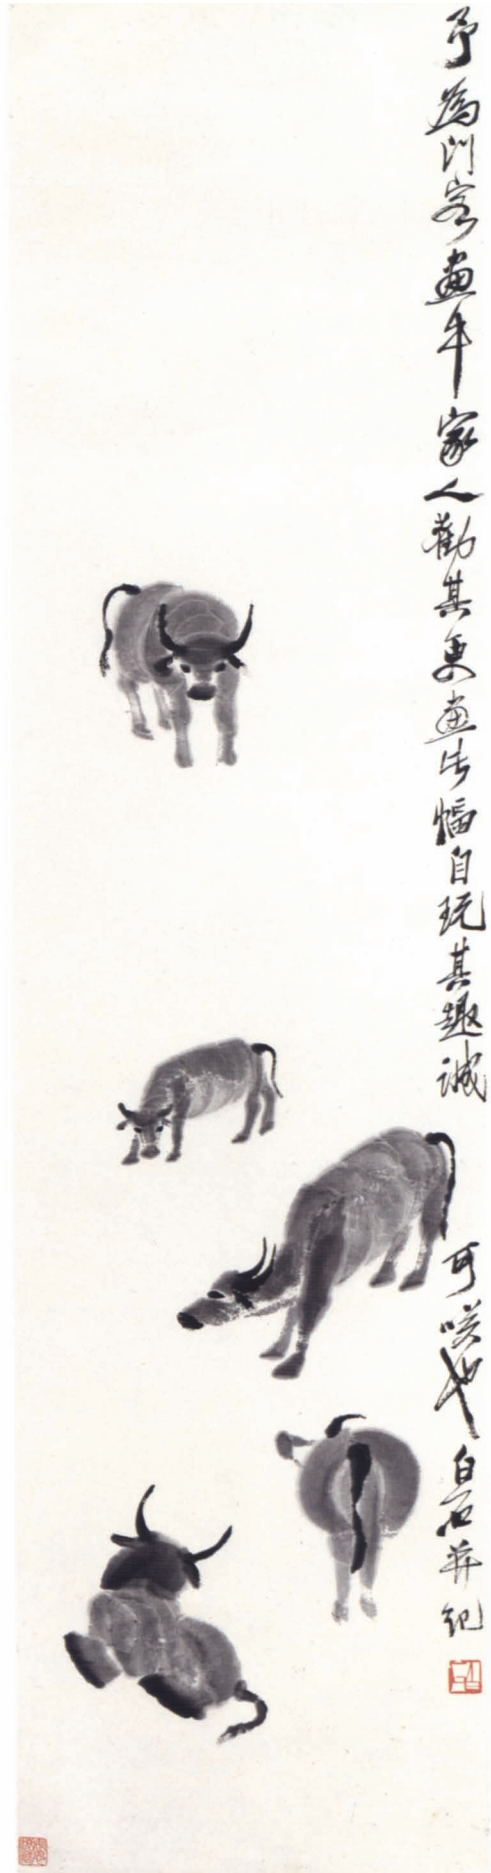 予為門客画牛家人勸其更画此幅自玩其趣誠可咲也白石并紀